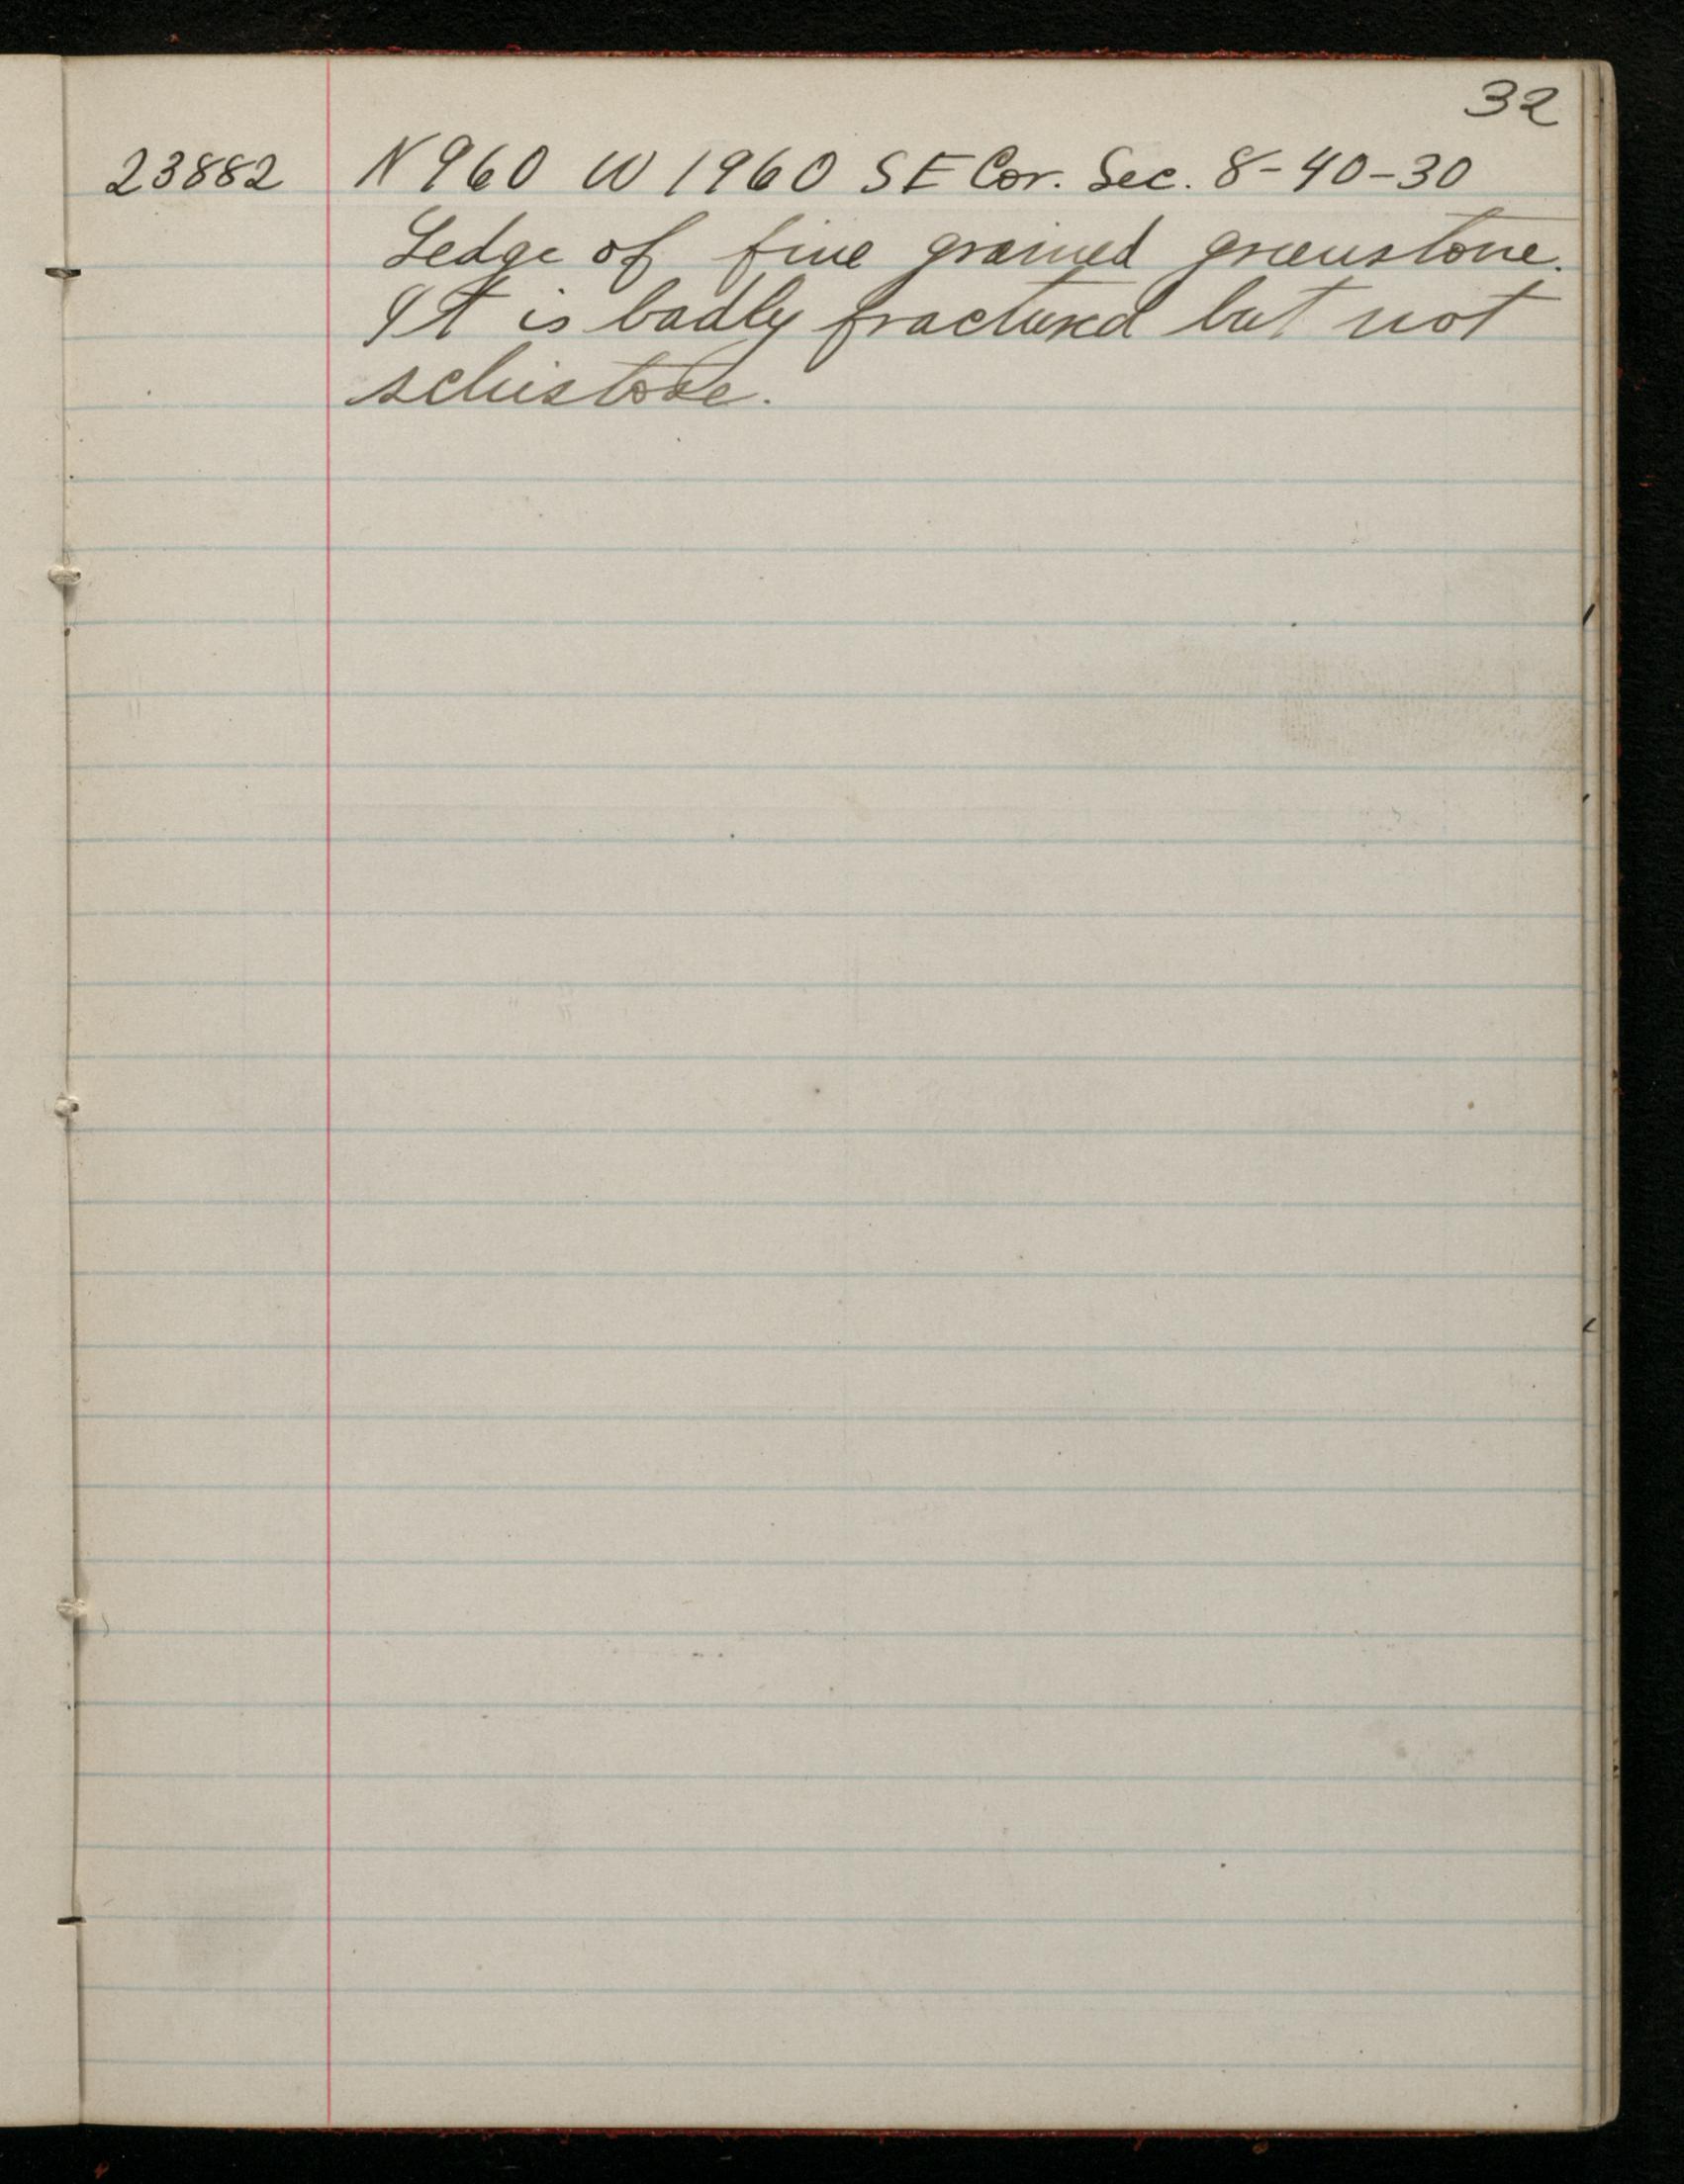 32
23882 N 960 W 1960 SE Cor. Sec. 8-40-30
Ledge of fine grained greenstone.
It is badly fractured but not
schistose.